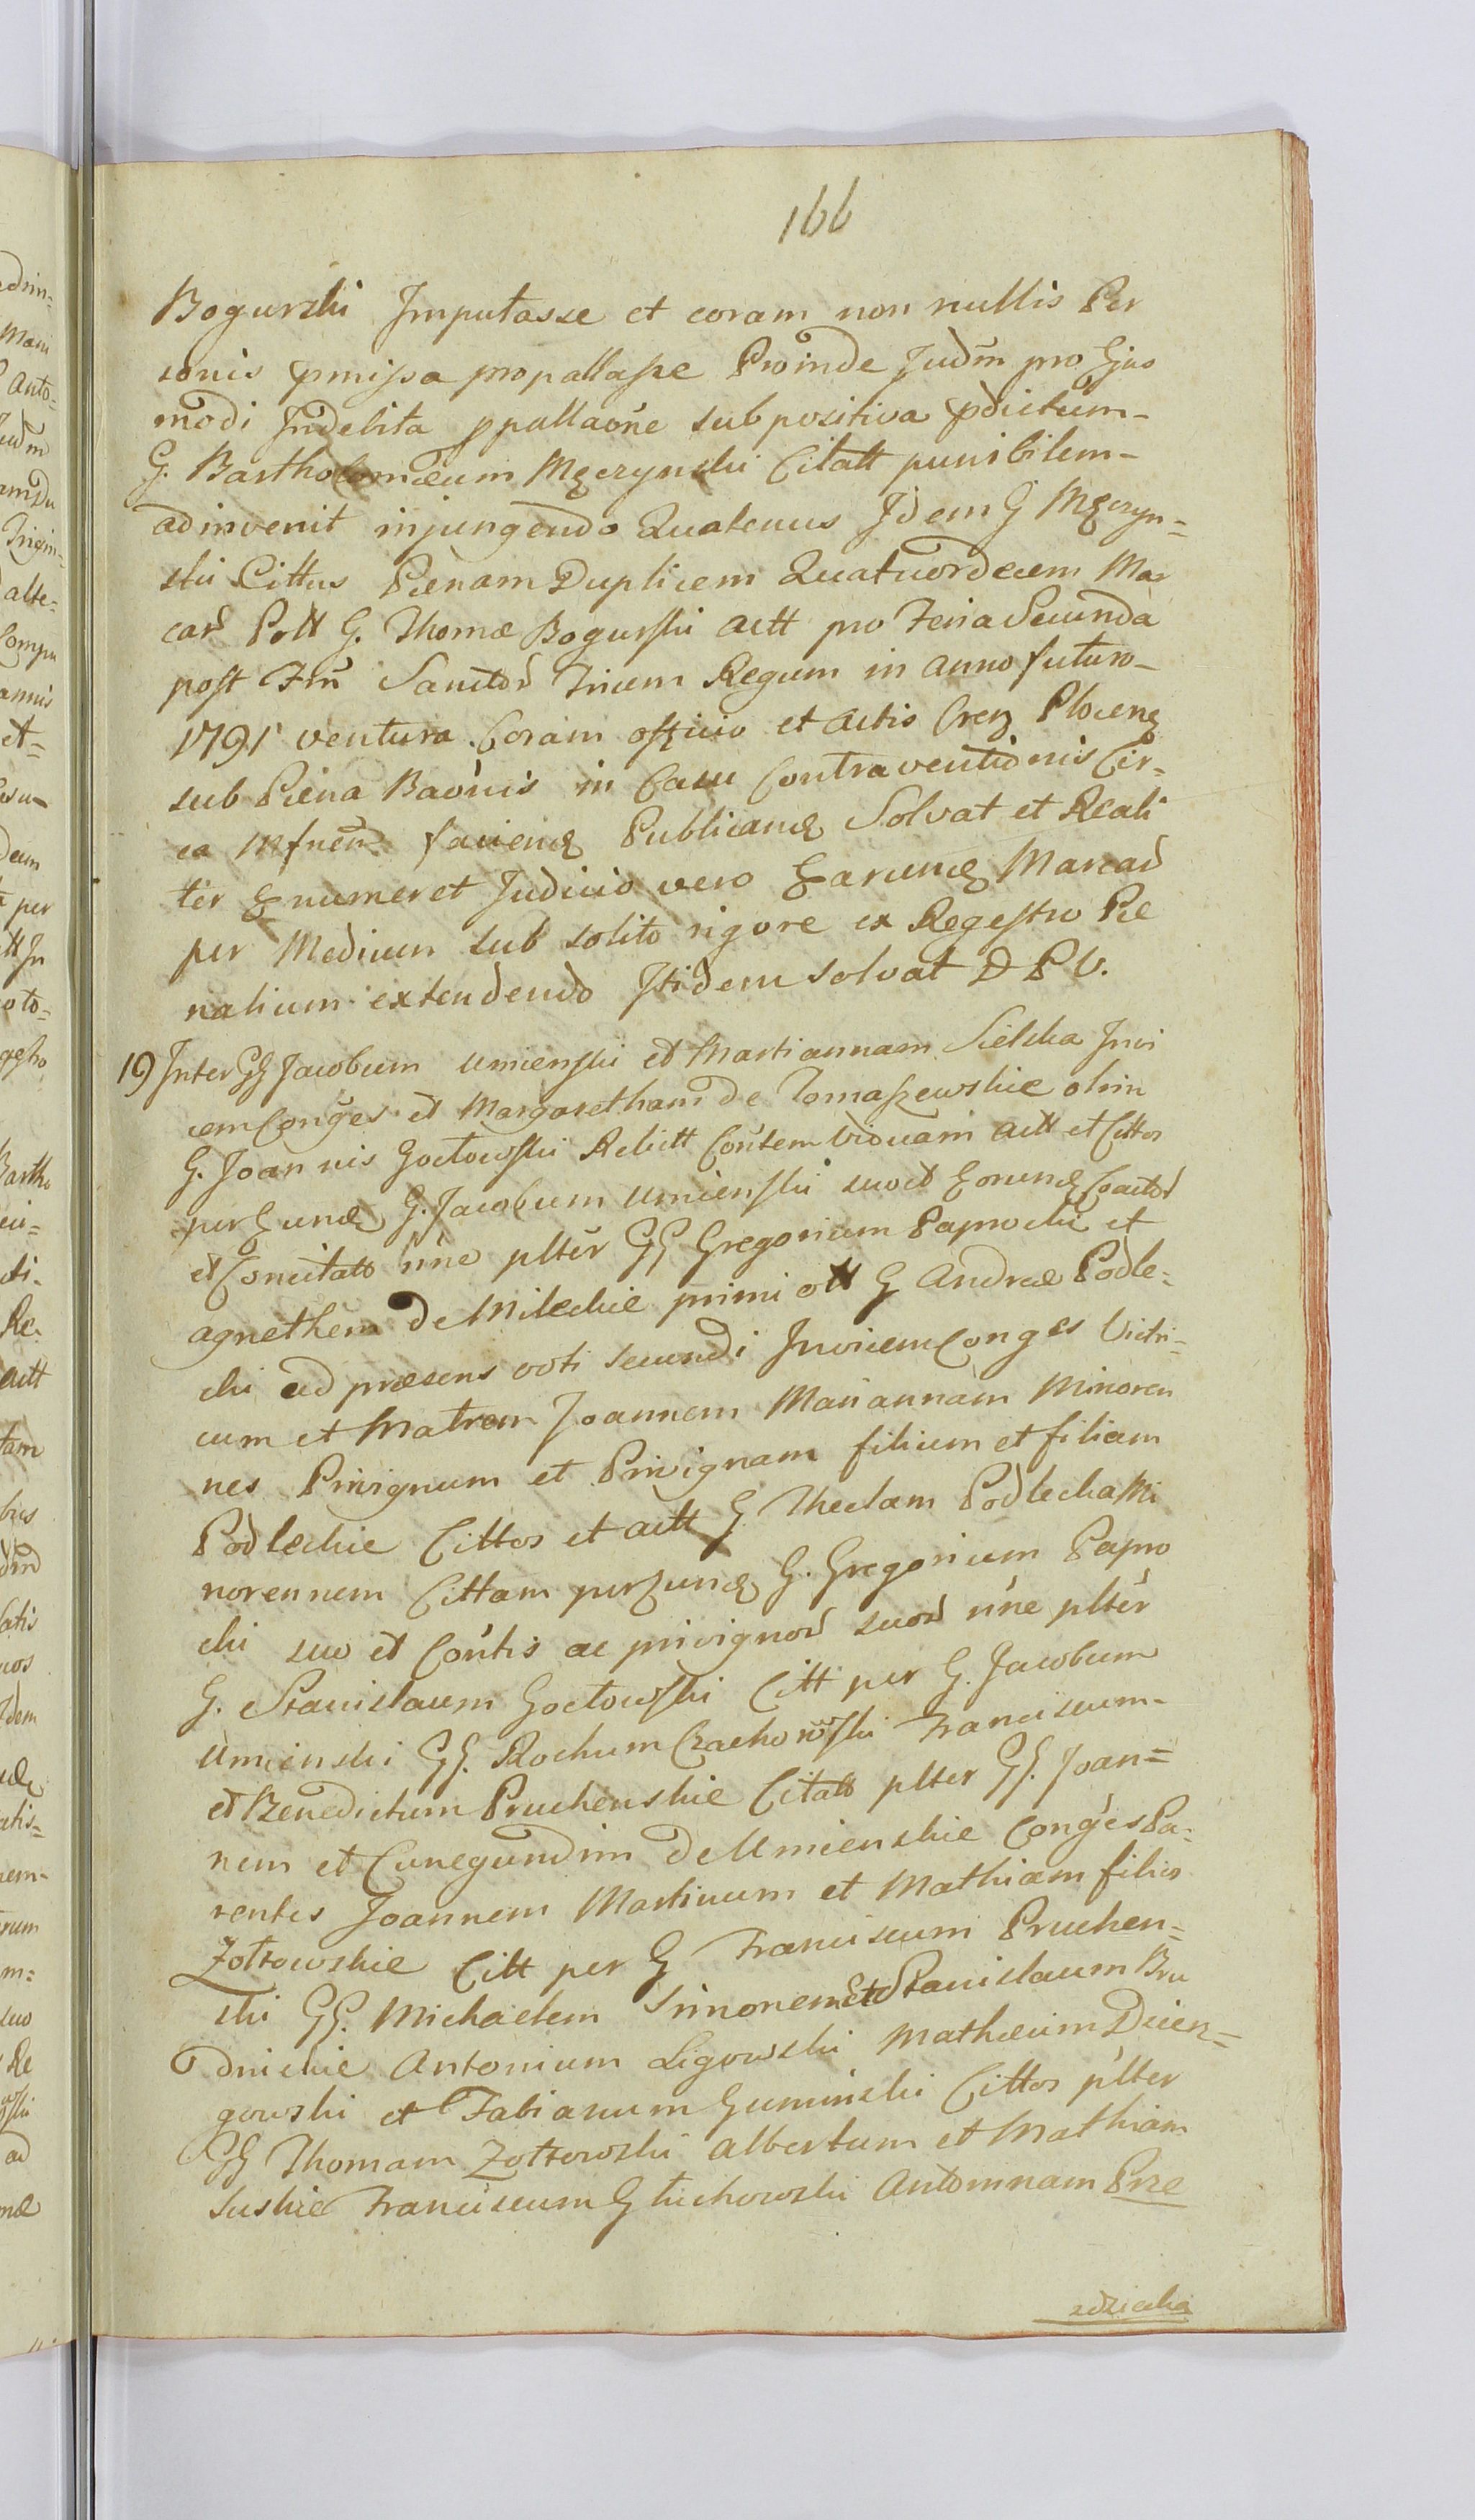 166
Bogurski Imputasse et coram non nullis Per
sonis pmissa propallasse Proinde Judm pro Ejus
modi Indebita ppallaone subpositiva pdictum-
G. Bartholomæum Męczynski Citatt punibilem-
adinvenit injungendo Quatenus Idem G Męczyn=
ski Cittus Pænam Duplicem Quatuordecem Mar
car Poll G. Thomæ Bogurski actt pro Feria Secunda
post Ftu Sanctor Trium Regum in anno futuro-
1791 ventura Coram officio et actis Cren Plocenq
sub Pæna Baonis in Casu Contraventionis Cir=
ca faciend Publicand Solvat et Reali
ter Enumeret Judicio vero Earund Marcar
per Medium sub solito rigore ex Regestro Pæ
nalium extendendo Itidem solvat D P V.
19 Inter GG Jacobum Umienski et Martiannam Sielska Invi
cem Conges et Margaretham de Tomaszewskie olim
G. Joannis Goctowski Relictt Contem Viduam actt et Cittos
per Eund G. Jacobum Umienski suo et Eorund Coactor
et Concitatt nne plter GG Gregorium Paprocki et
agnethem De Mileckie primi ott G Andreæ Podle=
cki ad præsens voti secundi Invicem Conges Vitri=
cum et Matrem Joannem Mariannam Minoren
nes Privignum et Privignam filium et filiam
Podleckie Cittos et actt G Theclam Podlecka Mi
norennem Cittam per Eund G. Gregorium Papro
cki suo et Contis ac privignor suor nne plter
G. Stanislaum Goctowski Citt per G. Jacobum
Umienski GG. Rochum Czachowski Franciscum-
et Benedictum Pruchenskie Citatt plter GG. Joan=
nem et Cunegundim De Umienskie Conges Pa=
rentes Joannem Martinum et Mathiam filios
Zołtowskie Citt per G Franciscum Pruchen=
ski GG. Michaelem Simonem et Stanislaum Bru
dnickie Antonium Ligowski Mathæum Dzien=
gowski et Fabianum Guminski Cittos plter
GG Thomam Zołtowski Albertum et Mathiam
Suskie Franciscum Glichowski Antoninam Prze
zdziecka